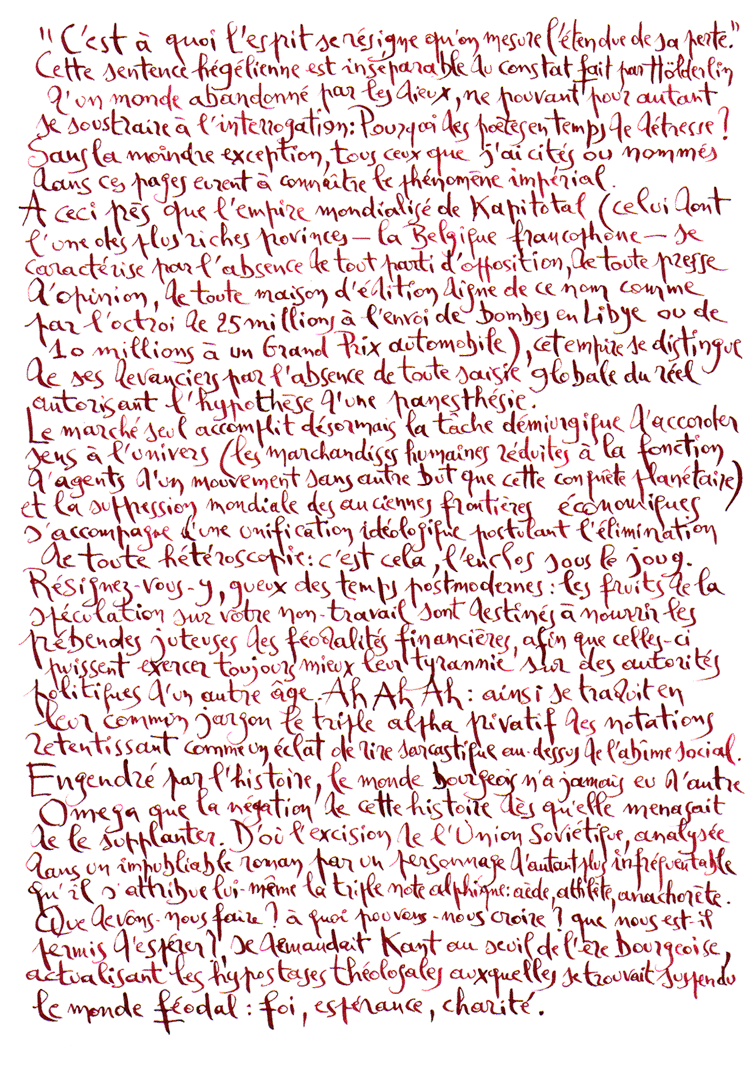 "C'est à quoi l'esprit se résigne qu'on mesure l'étendue de sa perte."
Cette sentence hégélienne est inséparable du constat fait par Hölderlin
d'un monde abandonné par les dieux, ne pouvant pour autant
se soustraire à l'interrogation: Pourquoi des poètes en temps de détresse?
Sans la moindre exception, tous ceux que j'ai cités ou nommés
dans ces pages eurent à connaître le phénomène impérial.
A ceci près que l'empire mondialisé de Kapitotal (celui dont
l'une des plus riches provinces — la Belgique francophone — se
caractérise par l'absence de tout parti d'opposition, de toute presse
d'opinion, de toute maison d'édition digne de ce nom comme
par l'octroi de 25 millions à l'envoi de bombes en Libye ou de
10 millions à un Grand Prix automobile), cet empire se distingue
de ses devanciers par l'absence de toute saisie globale du réel
autorisant l'hypothèse d'une panesthésie.
Le marché seul accomplit désormais la tâche démiurgique d'accorder
sens à l'univers (les marchandises humaines réduites à la fonction
d'agents d'un mouvement sans autre but que cette conquête planétaire)
et la suppression mondiale des anciennes frontières économiques
s'accompagne d'une unification idéologique postulant l'élimination
de toute hétéroscopie: c'est cela, l'enclos sous le joug.
Résignez-vous-y, gueux des temps postmodernes: les fruits de la
spéculation sur votre non-travail sont destinés à nourrir les
prébendes juteuses des féodalités financières, afin que celles-ci
puissent exercer toujours mieux leur tyrannie sur des autorités
politiques d'un autre âge. Ah Ah Ah: ainsi se traduit en
leur commun jargon le triple alpha privatif des notations
retentissant comme un éclat de rire sarcastique au-dessus de l'abîme social.
Engendré par l'histoire, le monde bourgeois n'a jamais eu d'autre
Omega que la négation de cette histoire dès qu'elle menaçait
de le supplanter. D'où l'excision de l'Union Soviétique, analysée
dans un impubliable roman par un personnage d'autant plus infréquentable
qu'il s'attribue lui-même la triple note alphique: aède, athlète, anachorète.
Que devons-nous faire? à quoi pouvons-nous croire? que nous est-il
permis d'espérer?, se demandait Kant au seuil de l'ère bourgeoise,
actualisant les hypostases théologales auxquelles se trouvait suspendu
le monde féodal: foi, espérance, charité.